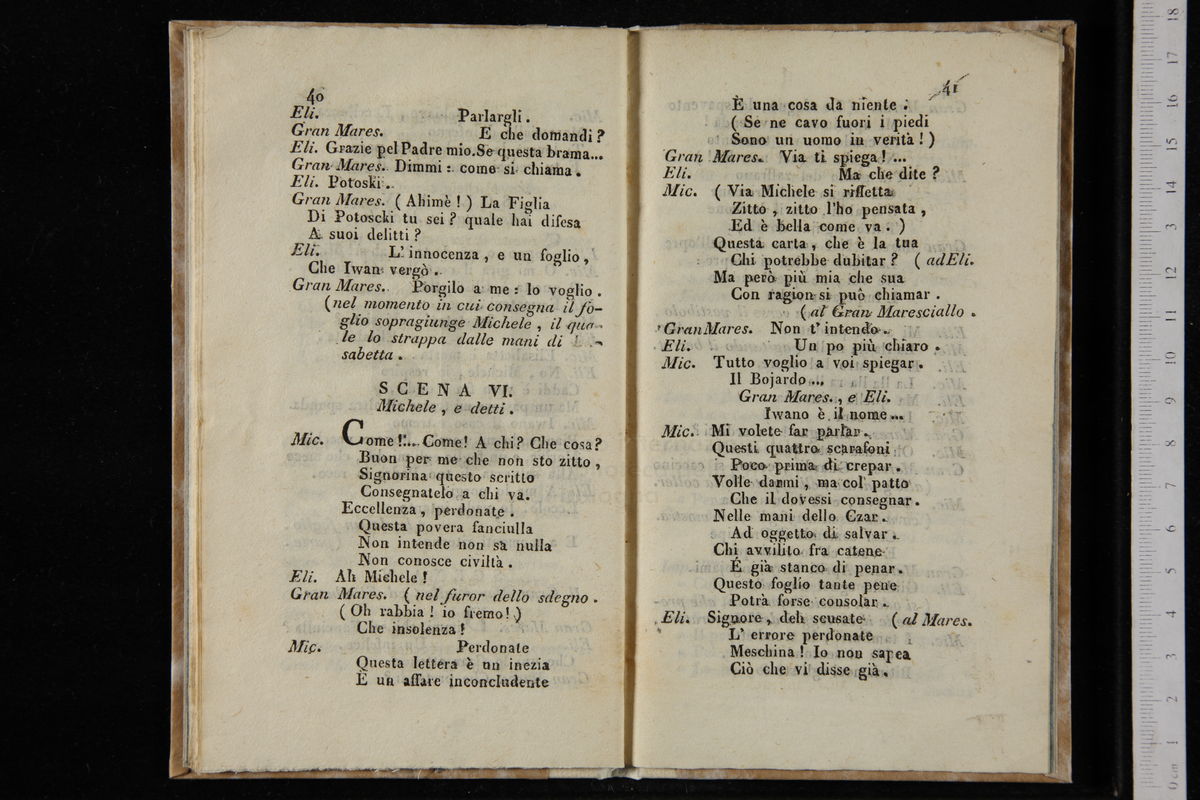 40
Eli. Parlargli.
Gran Mares. E che domandi?
Eli. Grazie pel Padre mio. Se questa brama...
Gran Mares. Dimmi: come si chiama.
Eli. Potoski.
Gran Mares. (Ahimè!) La Figlia
Di Potoscki tu sei? quale hai difesa
A suoi delitti?
Eli. L'innocenza, e un foglio,
Che Iwan vergò.
Gran Mares. Porgilo a me: lo voglio.
(nel momento in cui consegna il fo-
glio sopragiunge Michele, il qua-
le lo strappa dalle mani di
sabetta.
SCENA VI.
Michele, e detti.
Mic. Come!... Come! A chi? Che cosa?
Buon per me che non sto zitto,
Signorina questo scritto
Consegnatelo a chi va.
Eccellenza, perdonate.
Questa povera fanciulla
Non intende non sa nulla
Non conosce civiltà.
Eli. Ah Michele!
Gran Mares. (nel furor dello sdegno.
(Oh rabbia! io fremo!)
Che insolenza!
Mic. Perdonate
Questa lettera è un inezia
È un affare inconcludente
41
È una cosa da niente.
(Se ne cavo fuori i piedi
Sono un uomo in verità!)
Gran Mares. Via ti spiega!...
Eli. Ma che dite?
Mic. (Via Michele si rifletta
Zitto, zitto l'ho pensata,
Ed è bella come va.)
Questa carta, che è la tua
Chi potrebbe dubitar? (ad Eli.
Ma però più mia che sua
Con ragion si può chiamar.
(al Gran Maresciallo.
Gran Mares. Non t'intendo.
Eli. Un po più chiaro.
Mic. Tutto voglio a voi spiegar.
Il Bojardo...
Gran Mares., e Eli.
Iwano è il nome...
Mic. Mi volete far parlar.
Questi quattro scarafoni
Poco prima di crepar.
Volle darmi, ma col patto
Che il dovessi consegnar.
Nelle mani dello Czar.
Ad oggetto di salvar.
Chi avvilito fra catene
É già stanco di penar.
Questo foglio tante pene
Potrà forse consolar.
Eli. Signore, deh scusate (al Mares.
L'errore perdonate
Meschina! Io non sapea
Ciò che vi disse già.